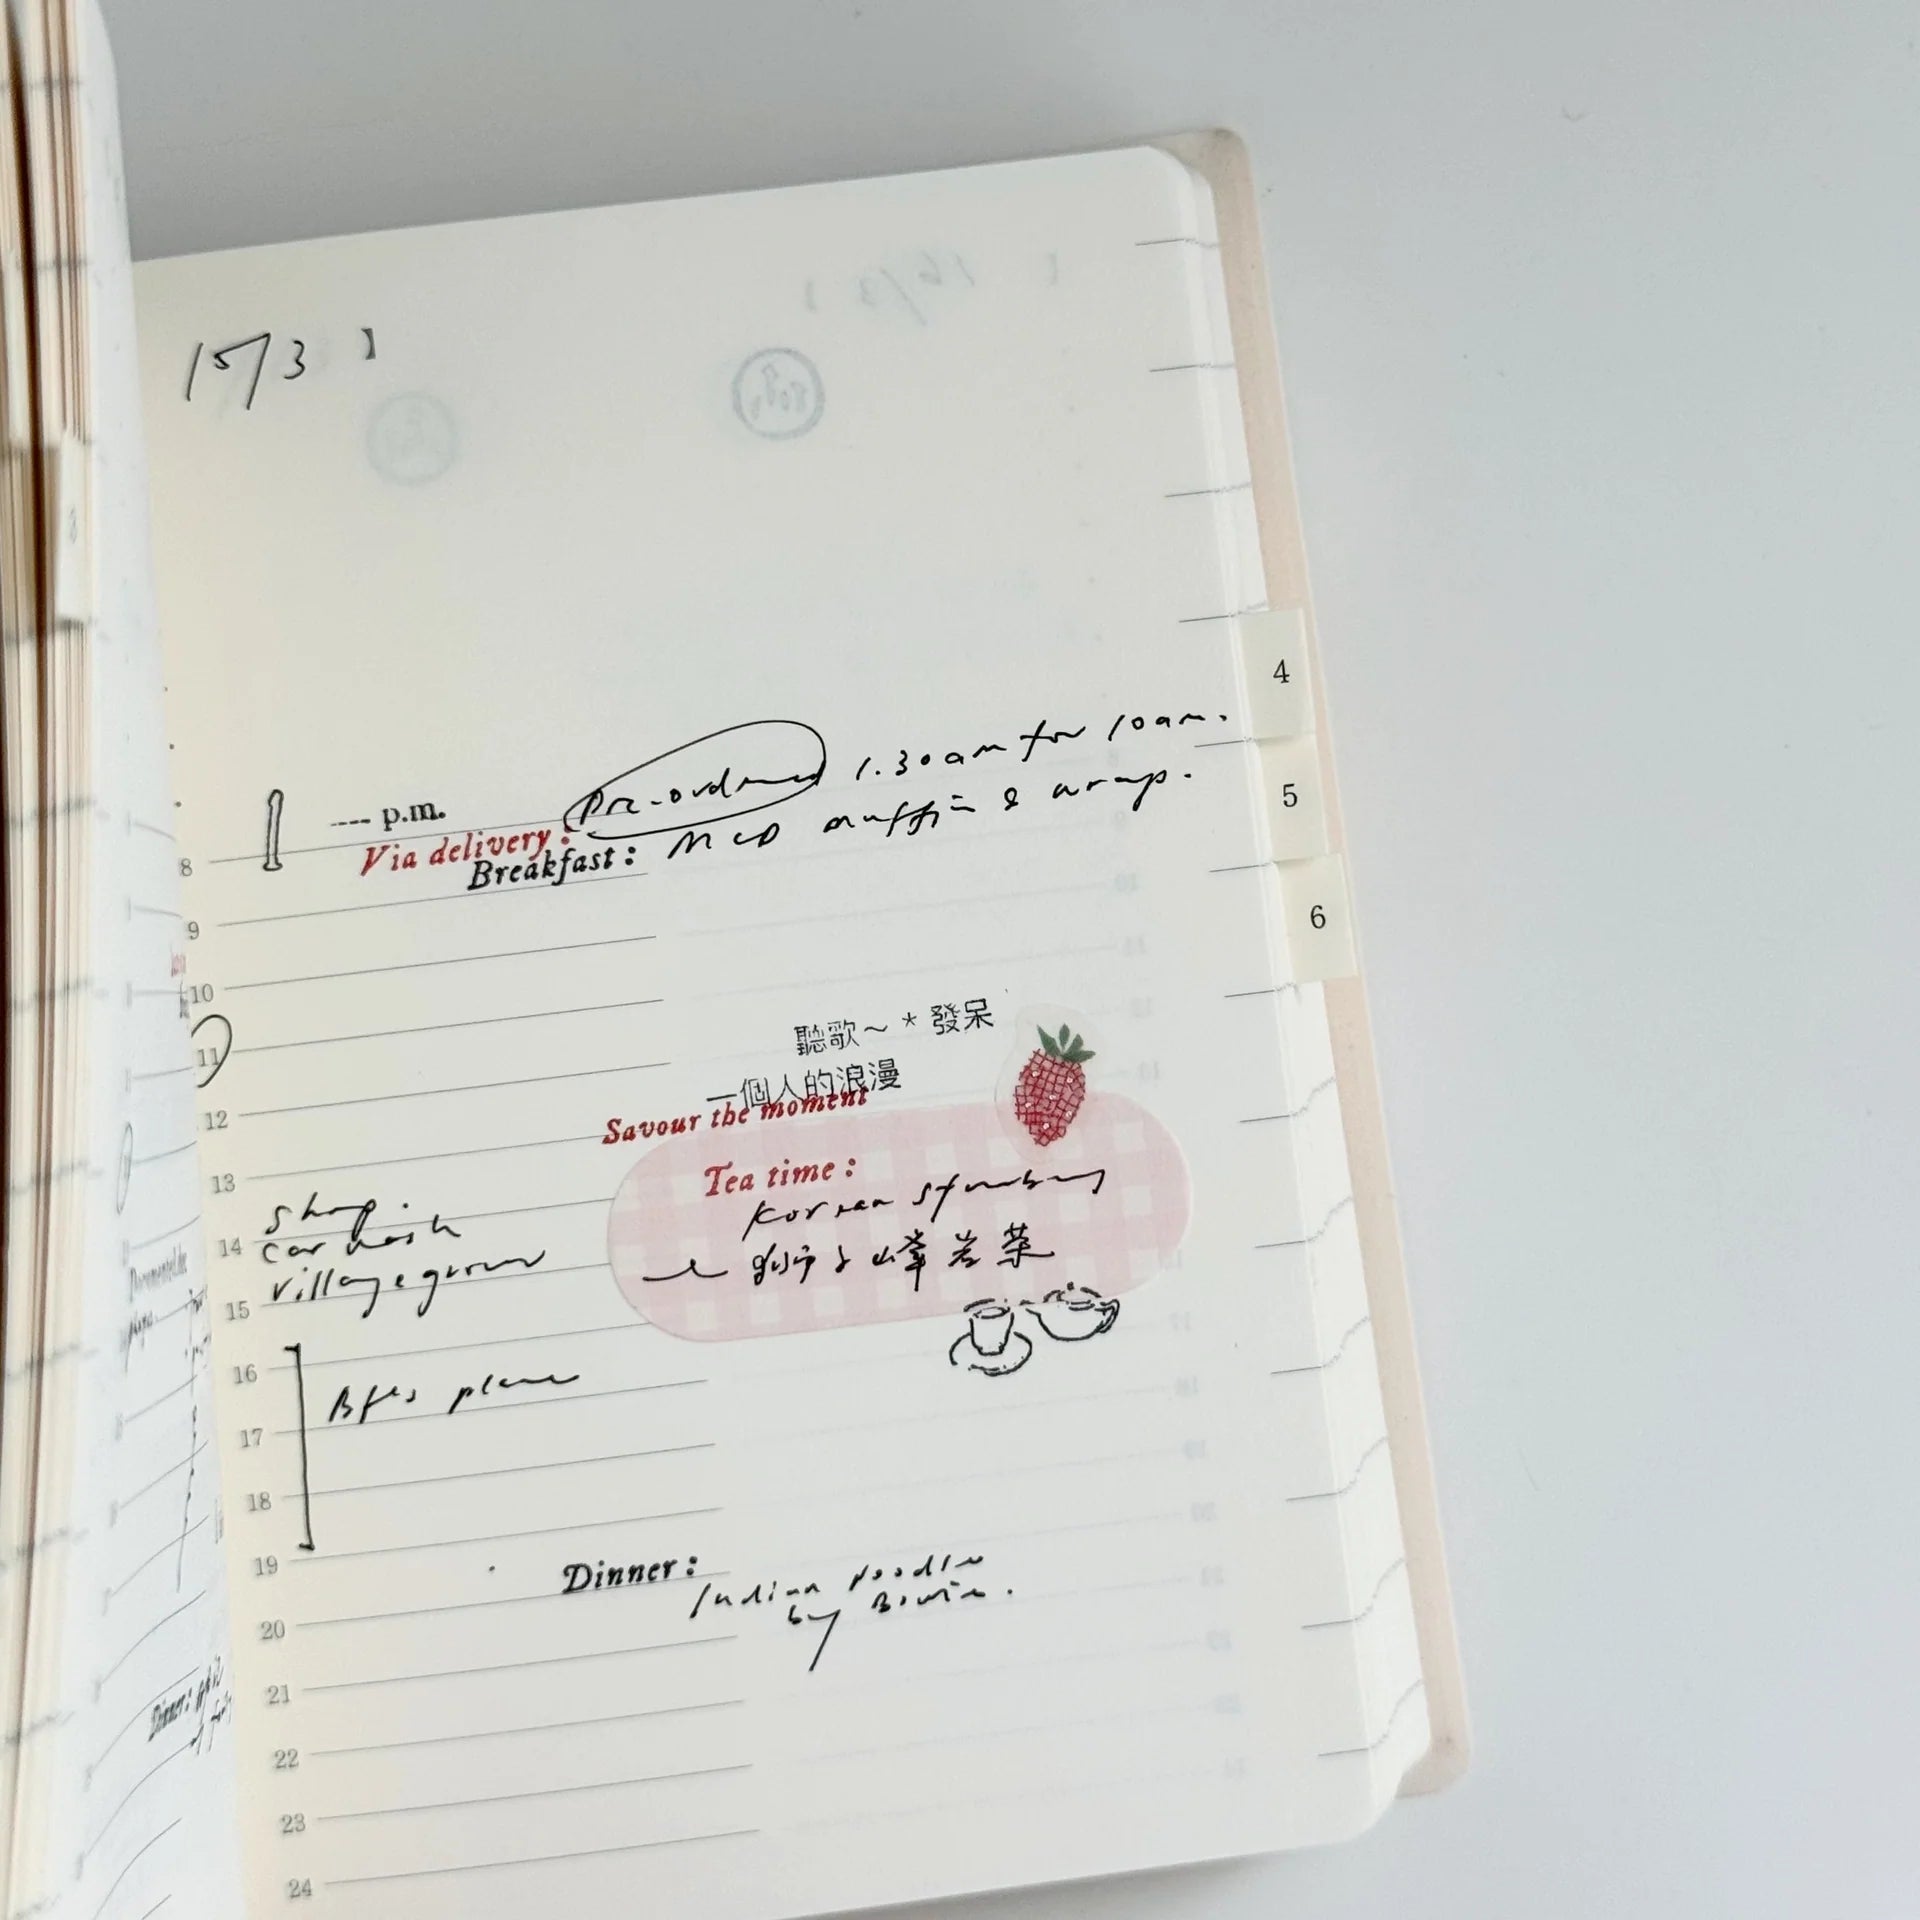 15/3 】
4
5
6
---- p.m.
Via delivery : Pre-ordered 1.30am for 10am.
Breakfast : McD muffin & wrap.
8
9
10
11
12
13
14
15
16
17
18
19
20
21
22
23
24
聽歌～ * 發呆
一個人的浪漫
Savour the moment
Tea time :
Korean strawberry
獅子峰岩茶
Shop.
car wash
village grocer
Bff's place
Dinner :
Indian Noodle
by
Dinner :